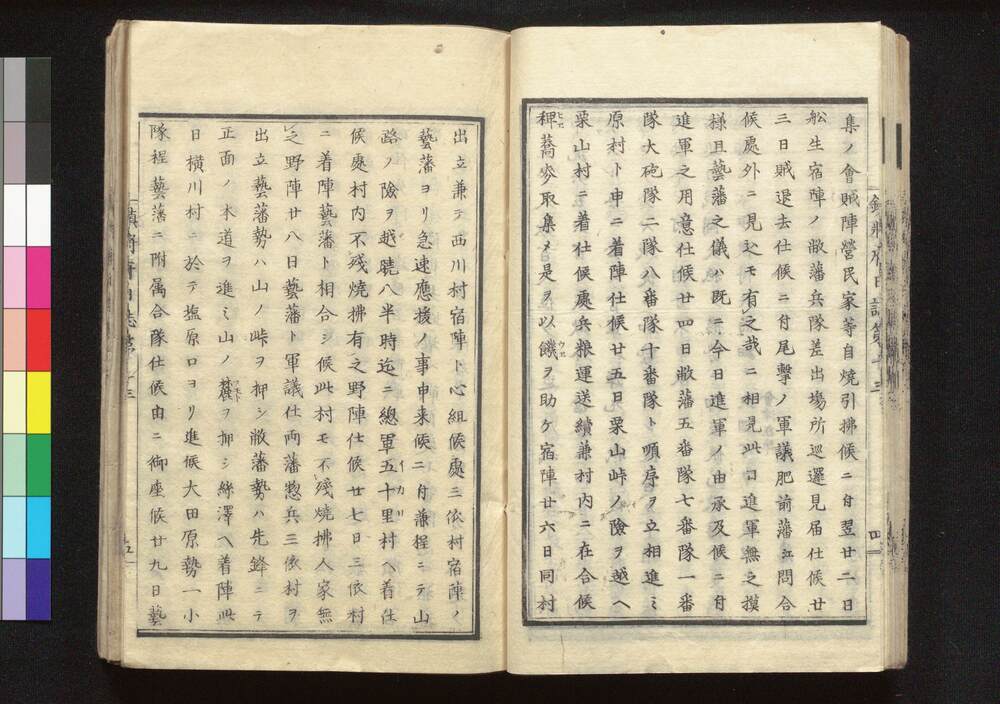 集ノ會賊陣營民家等自燒引拂候ニ付翌廿二日
舩生宿陣ノ敝藩兵隊差出塲所巡邏見届仕候廿
三日賊退去仕候ニ付尾擊ノ軍議肥前藩江問合
候處外ニ見込モ有之哉ニ相見此口進軍無之摸
樣且藝藩之儀ハ既ニ今日進軍ノ由承及候ニ付
進軍之用意仕候廿四日敝藩五番隊七番隊一番
隊大砲隊二隊八番隊十番隊ト順序ヲ立相進ミ
原村ト申ニ着陣仕候廿五日栗山峠ノ險ヲ越ヘ
栗山村ニ着仕候處兵粮運送續兼村内ニ在合候
稗蕎麥取集メ是ヲ以饑ヲ助ケ宿陣廿六日同村
四
出立兼テ西川村宿陣ト心組候處三依村宿陣ノ
藝藩ヨリ急速應援ノ事申来候ニ付兼程ニテ山
路ノ險ヲ越曉八半時迄ニ總軍五十里村ヘ着仕
候處村内不殘燒拂有之野陣仕候廿七日三依村
ニ着陣藝藩ト相合シ候此村モ不殘燒拂人家無
之野陣廿八日藝藩ト軍議仕両藩惣兵三依村ヲ
出立藝藩勢ハ山ノ峠ヲ押シ敝藩勢ハ先鋒ニテ
正面ノ本道ヲ進ミ山ノ麓ヲ押シ絲澤ヘ着陣此
日横川村ニ於テ塩原口ヨリ進候大田原勢一小
隊程藝藩ニ附属合隊仕候由ニ御座候廿九日藝
五